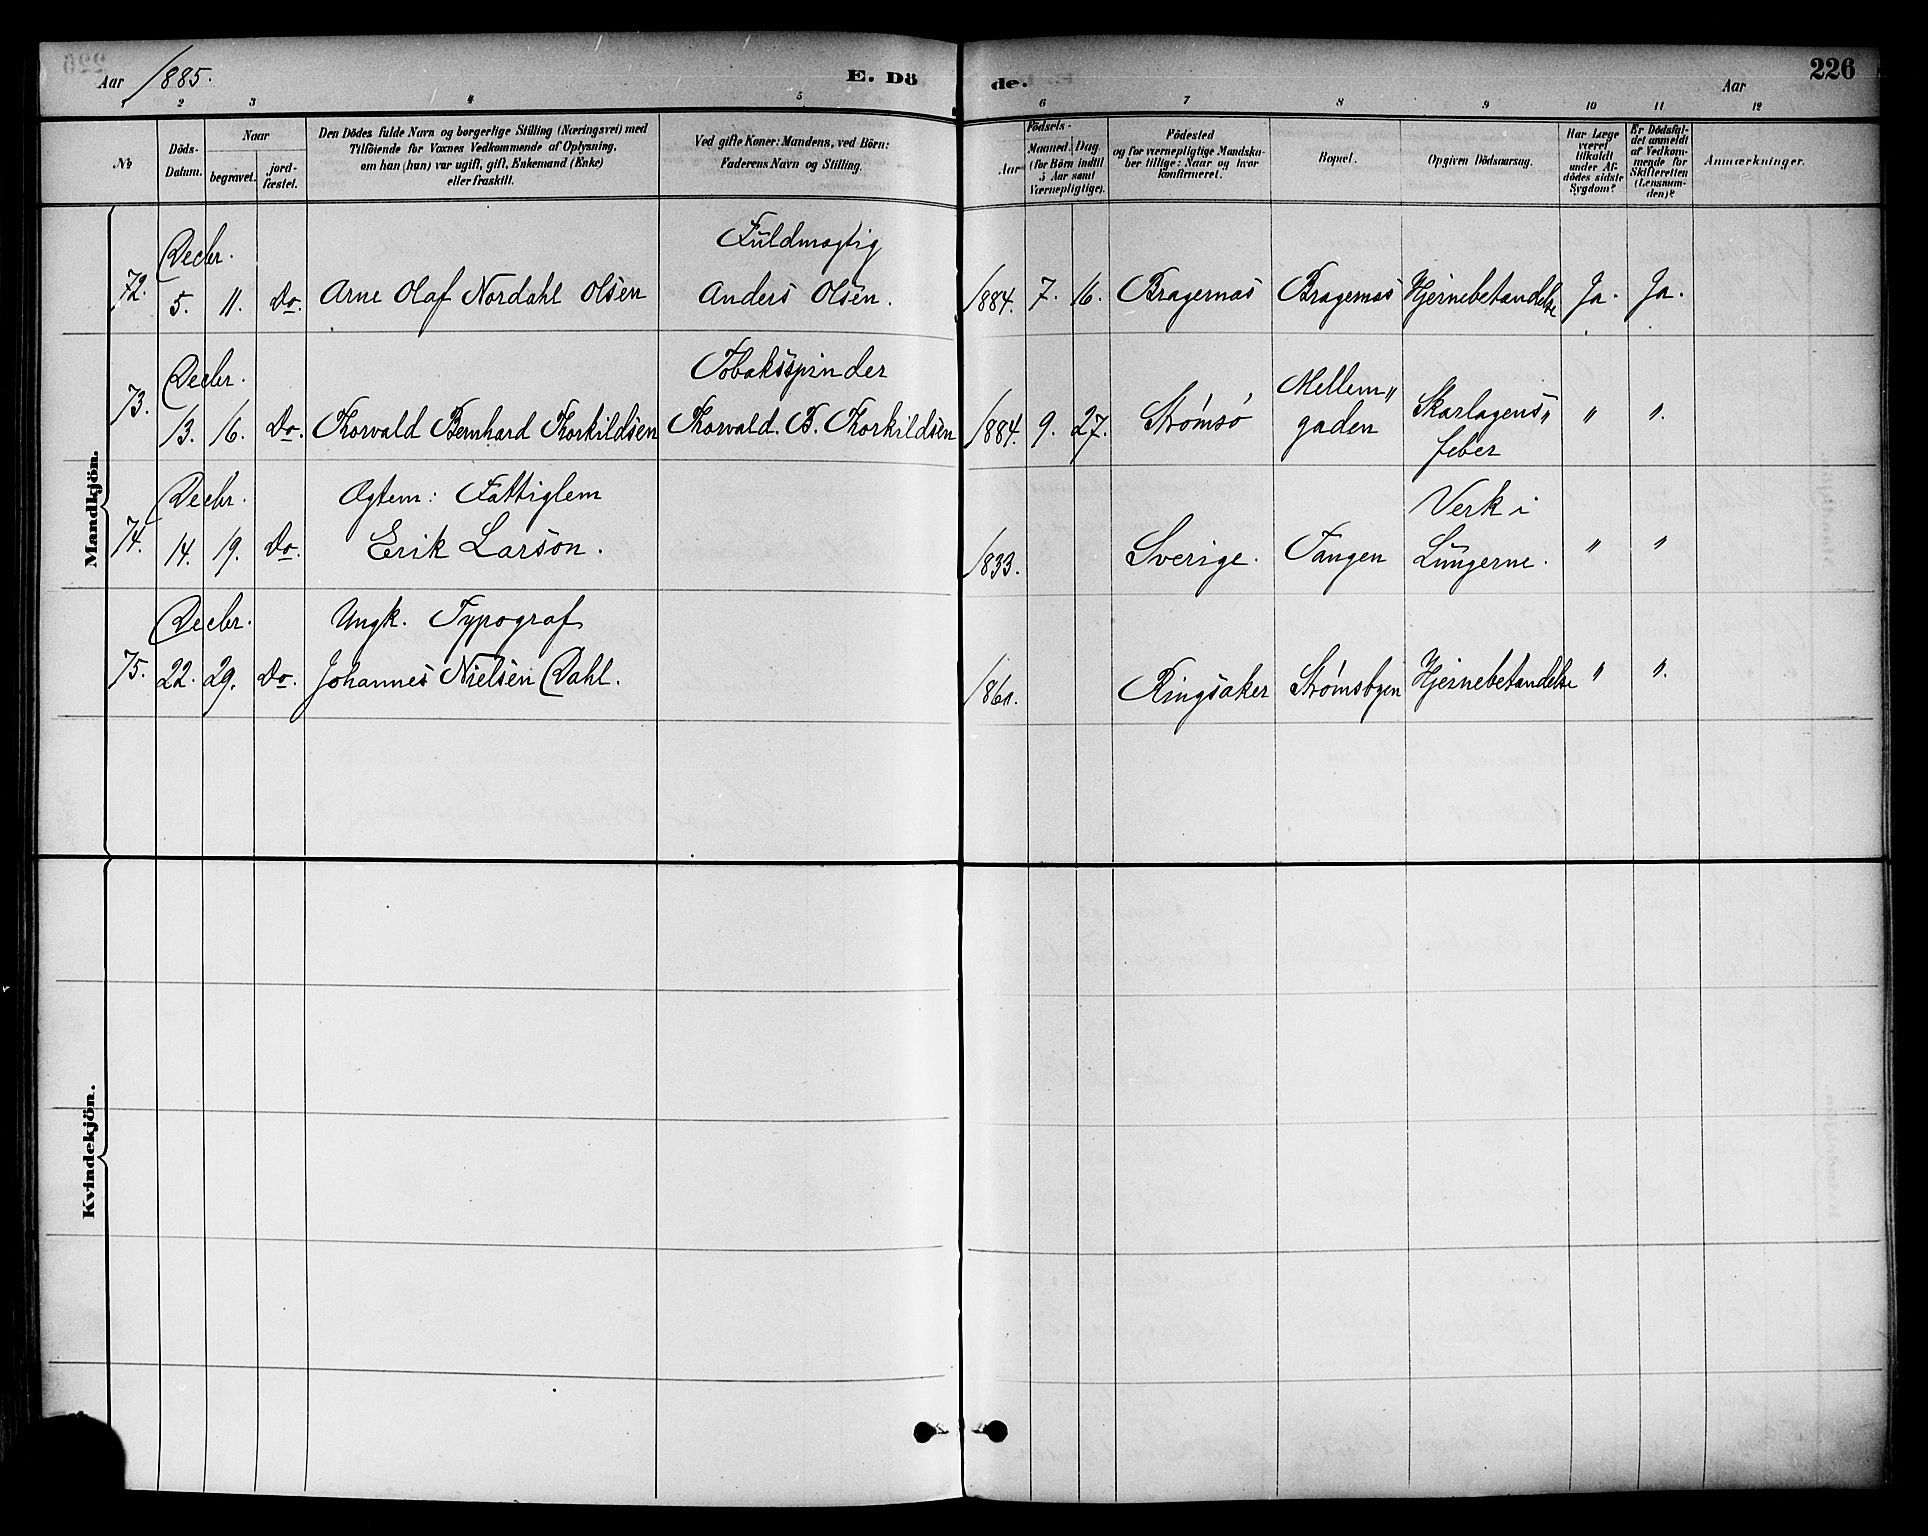 Aar 1885. E. Dö de. Aar 226
2 3 4 5 6 7 8 9 10 11 12
No
Döds-
Datum.
Naar
begravet. jord-
fæstet.
Den Dödes fulde Navn og borgerlige Stilling (Næringsvei) med
Tilföiende for Voxnes Vedkommende af Oplysning,
om han (hun) var ugift, gift, Enkemand (Enke)
eller fraskilt.
Ved gifte Koner: Mandens, ved Börn:
Faderens Navn og Stilling.
Födsels-
Aar Maaned. Dag
(for Börn indtil
5 Aar samt
Værnepligtige).
Födested
og for værnepligtige Mandska-
ber tillige: Naar og hvor
konfirmeret.
Bopæl.
Opgiven Dödsaarsag.
Har Læge
været
tilkaldt
under Af-
dödes sidste
Sygdom?
Er Dödsfal-
det anmeldt
af Vedkom-
mende for
Skifteretten
(Lensmanden)?
Anmærkninger.
Mandkjön.
Decbr. Fuldmægtig
72. 5. 11. Do. Arne Olaf Nordahl Olsen Anders Olsen. 1884. 7. 16. Bragernæs Bragernæs Hjernebetændelse Ja. Ja.
Decbr. Tobaksspinder Mellem„
73. 13. 16. Do. Thorvald Bernhard Thorkildsen Thorvald. B. Thorkildsen 1884. 9. 27. Strømsø gaden Skarlagens„ " ".
feber
Decbr. Ægtem: Fattiglem Verk i
74. 14. 19. Do. Erik Larson. 1833. Sverige. Tangen Lungerne. " "
Decbr. Ungk. Typograf
75. 22. 29. Do. Johannes Nielsen Dahl. Ringsaker Strømsbyen Hjernebetændelse " ".
Kvindekjön.